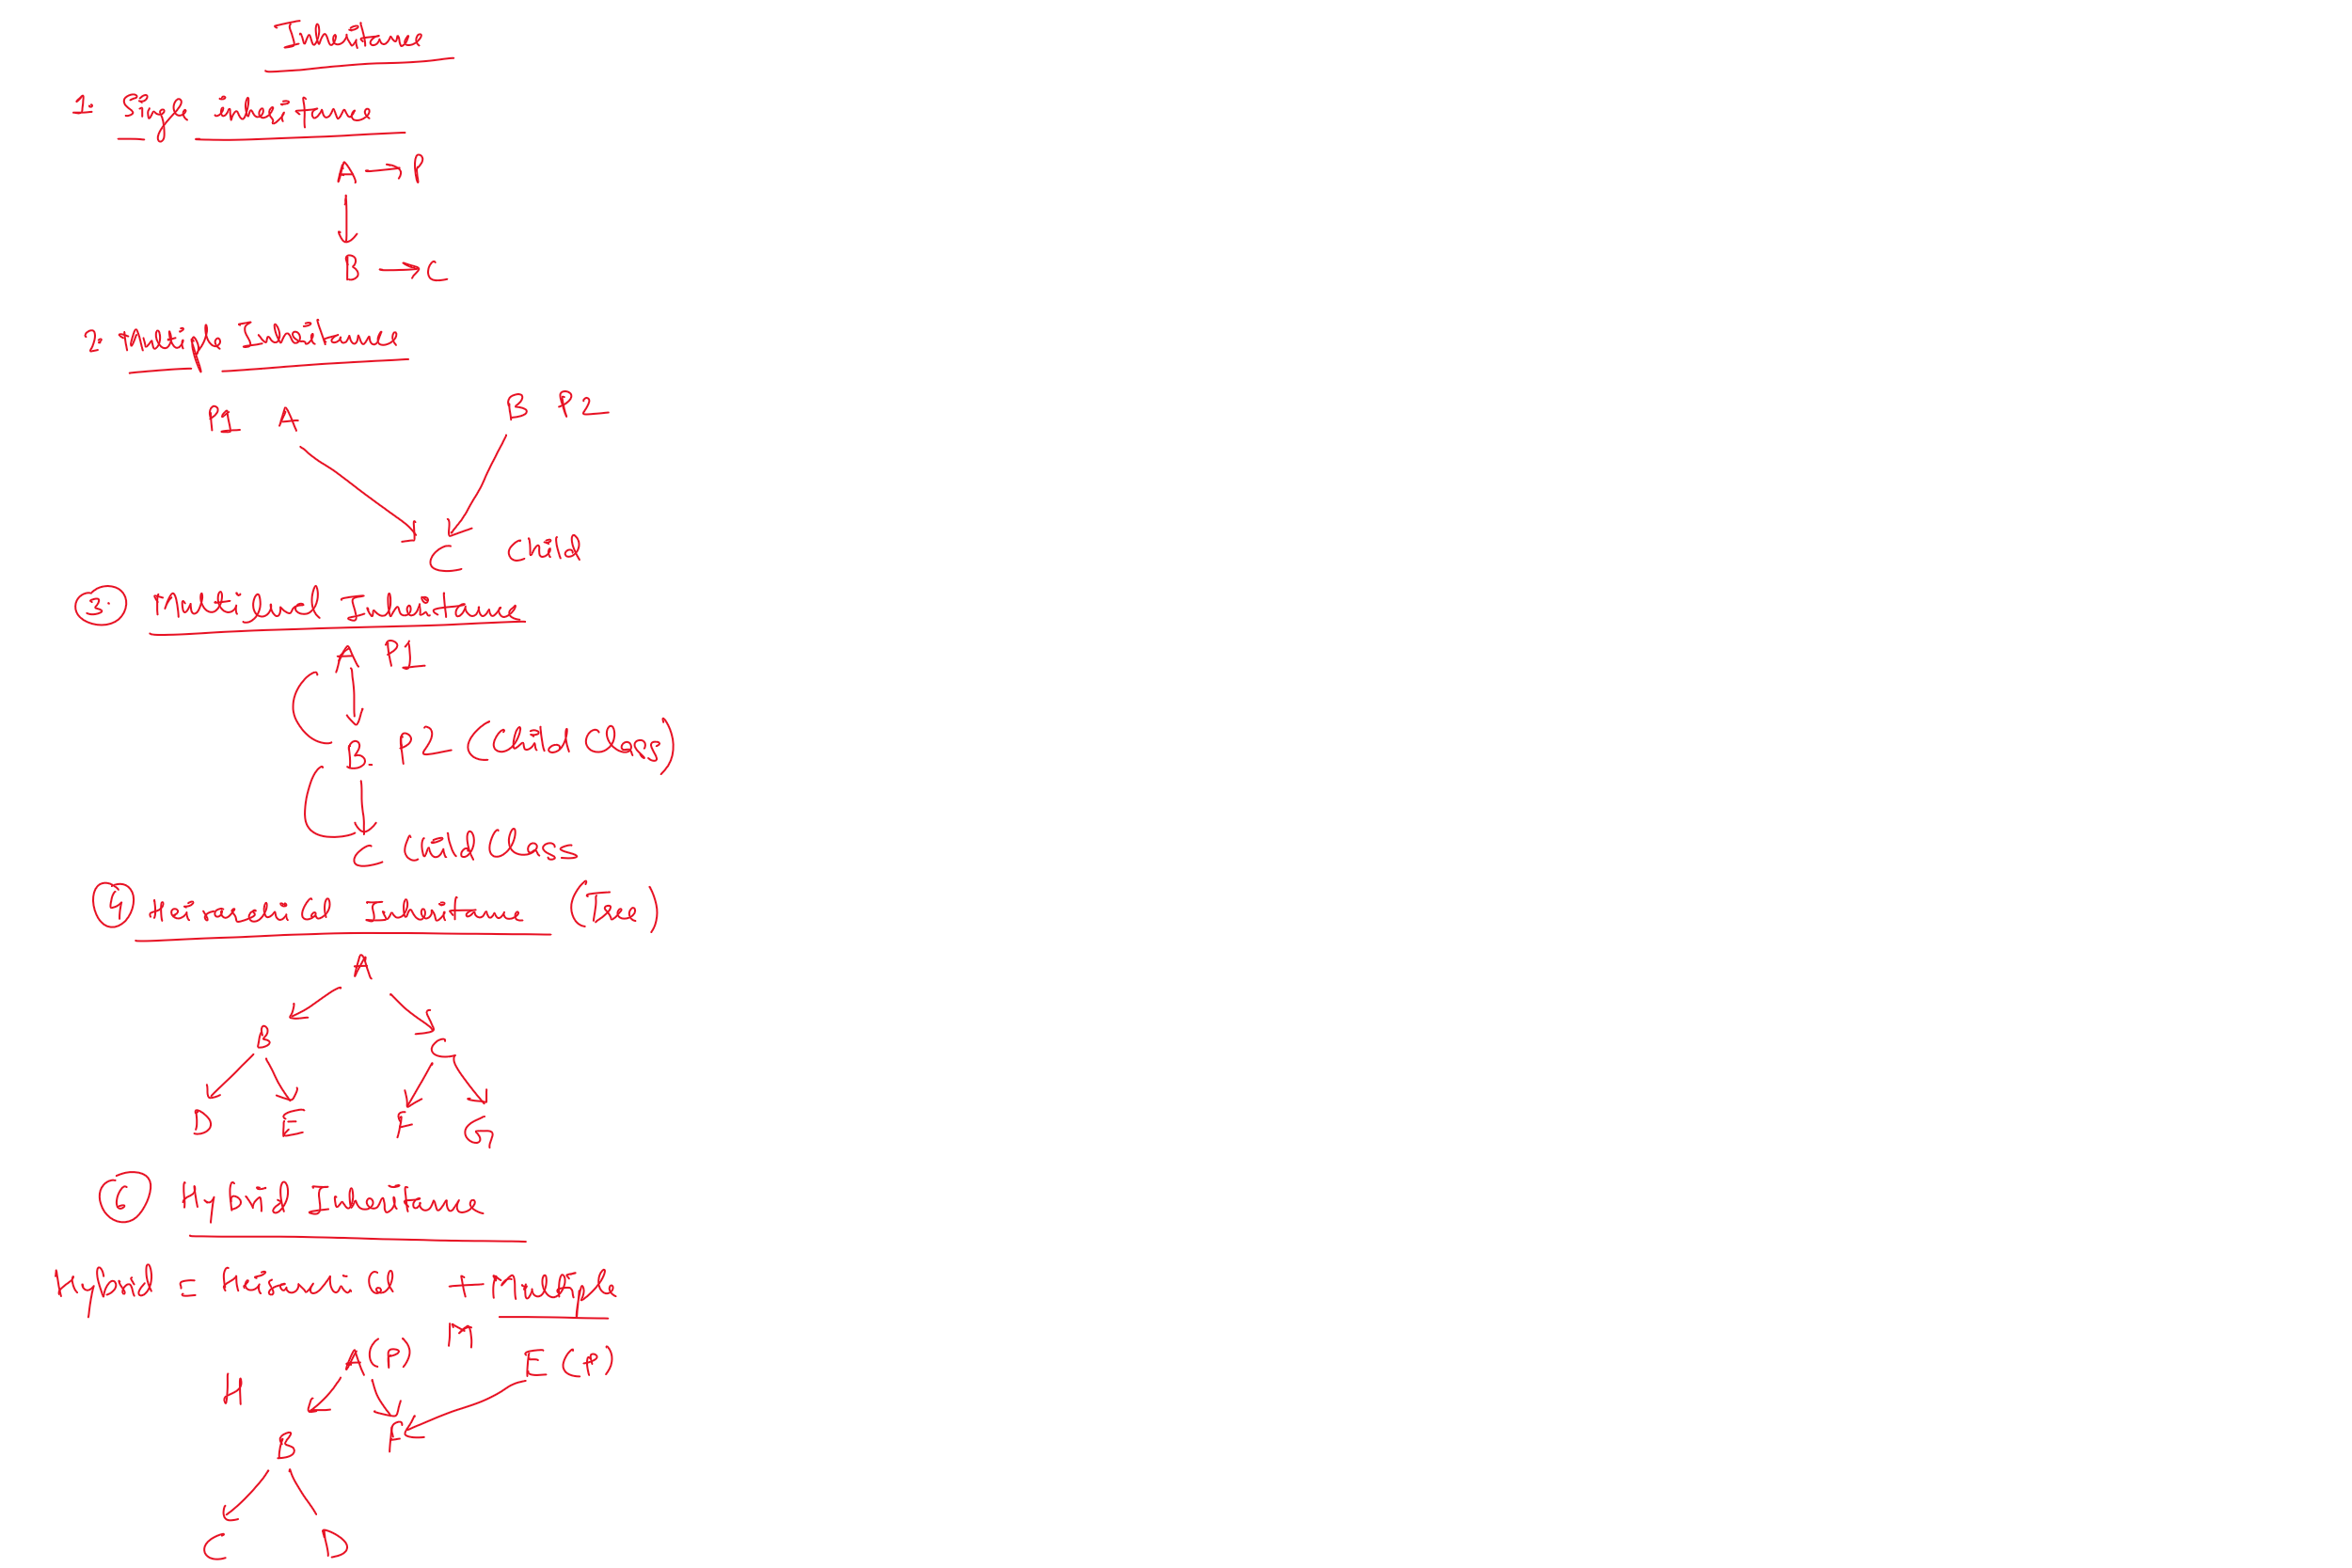 Inheritance
1. Single inheritance
A → P
B → C
2. Multiple Inheritance
P1 A B P2
C Child
3. Multilevel Inheritance
A P1
B. P2 (Child Class)
C Child Class
4 Heirarchical Inheritance (Tree)
A
B C
D E F G
6 Hybrid Inheritance
Hybrid = Heirarchical + Multiple
M
A(P) E (P)
H
B F
C D